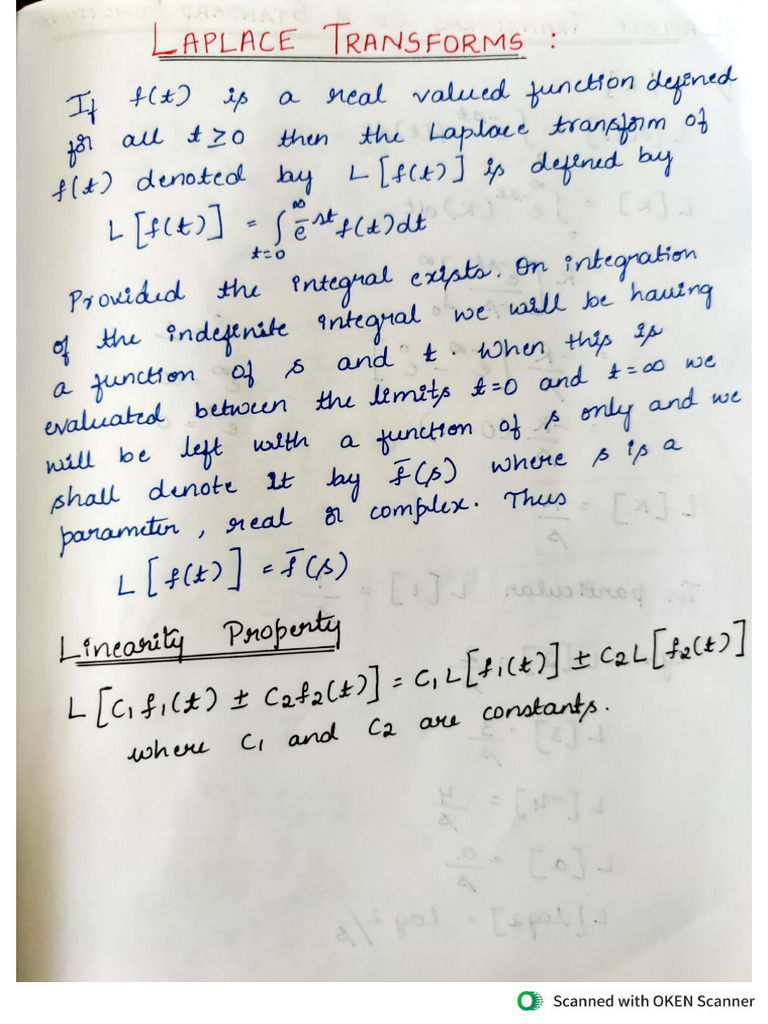 LAPLACE TRANSFORMS :
If f(t) is a real valued function defined
for all t ≥ 0 then the Laplace transform of
f(t) denoted by L[f(t)] is defined by
L[f(t)] = ∫_{t=0}^{∞} e^{-st} f(t) dt
Provided the integral exists. On integration
of the indefinite integral we will be having
a function of s and t. When this is
evaluated between the limits t=0 and t=∞ we
will be left with a function of s only and we
shall denote it by f̄(s) where s is a
parameter, real or complex. Thus
L[f(t)] = f̄(s)
Linearity Property
L[C₁f₁(t) ± C₂f₂(t)] = C₁L[f₁(t)] ± C₂L[f₂(t)]
where C₁ and C₂ are constants.
Scanned with OKEN Scanner